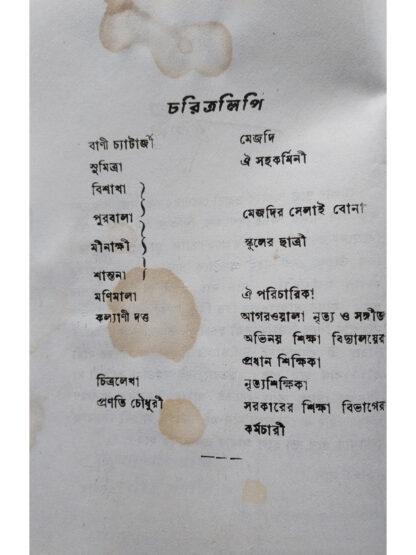 চরিত্রলিপি
বাণী চ্যাটার্জী মেজদি
সুমিত্রা ঐ সহকর্মিনী
বিশাখা
পুরবালা মেজদির সেলাই বোনা
মীনাক্ষী স্কুলের ছাত্রী
শান্তনা
মণিমালা ঐ পরিচারিকা
কল্যাণী দত্ত আগরওয়ালা নৃত্য ও সঙ্গীত
অভিনয় শিক্ষা বিদ্যালয়ের
প্রধান শিক্ষিকা
চিত্রলেখা নৃত্যশিক্ষিকা
প্রণতি চৌধুরী সরকারের শিক্ষা বিভাগের
কর্মচারী